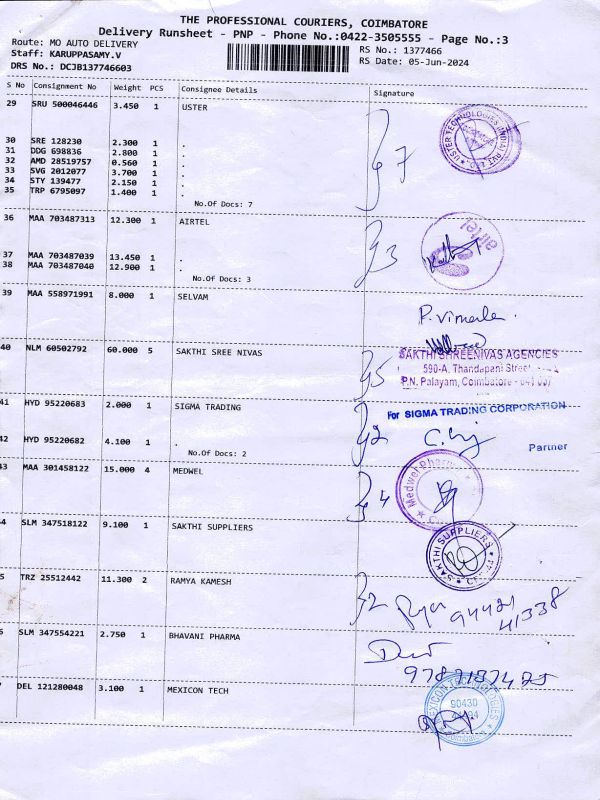 THE PROFESSIONAL COURIERS, COIMBATORE
Delivery Runsheet - PNP - Phone No.:0422-3505555 - Page No.:3
Route: MO AUTO DELIVERY
RS No.: 1377466
Staff: KARUPPASAMY.V
RS Date: 05-Jun-2024
DRS No.: DCJB137746603
S No Consignment No Weight PCS Consignee Details Signature
29 SRU 500046446 3.450 1 USTER
USTER TECHNOLOGIES (INDIA) PVT LTD
30 SRE 128230 2.300 1 .
31 DDG 698836 2.800 1 .
32 AMD 28519757 0.560 1 .
33 SVG 2012077 3.700 1 .
34 STY 139477 2.150 1 .
35 TRP 6795097 1.400 1 .
7
No.Of Docs: 7
36 MAA 703487313 12.300 1 AIRTEL
airtel
37 MAA 703487039 13.450 1 .
38 MAA 703487040 12.900 1 .
3
No.Of Docs: 3
39 MAA 558971991 8.000 1 SELVAM
P. Vimala
40 NLM 60502792 60.000 5 SAKTHI SREE NIVAS
5
SAKTHI SHREENIVAS AGENCIES
590-A, Thandapani Street
P.N. Palayam, Coimbatore
41 HYD 95220683 2.000 1 SIGMA TRADING
For SIGMA TRADING CORPORATION
42 HYD 95220682 4.100 1 .
2
No.Of Docs: 2
Partner
43 MAA 301458122 15.000 4 MEDWEL
4
Medwel Pharma
4 SLM 347518122 9.100 1 SAKTHI SUPPLIERS
SAKTHI SUPPLIERS
5 TRZ 25512442 11.300 2 RAMYA KAMESH
2
94421
41338
6 SLM 347554221 2.750 1 BHAVANI PHARMA
9787187425
DEL 121280048 3.100 1 MEXICON TECH
MEXICON TECHNOLOGIES
90430